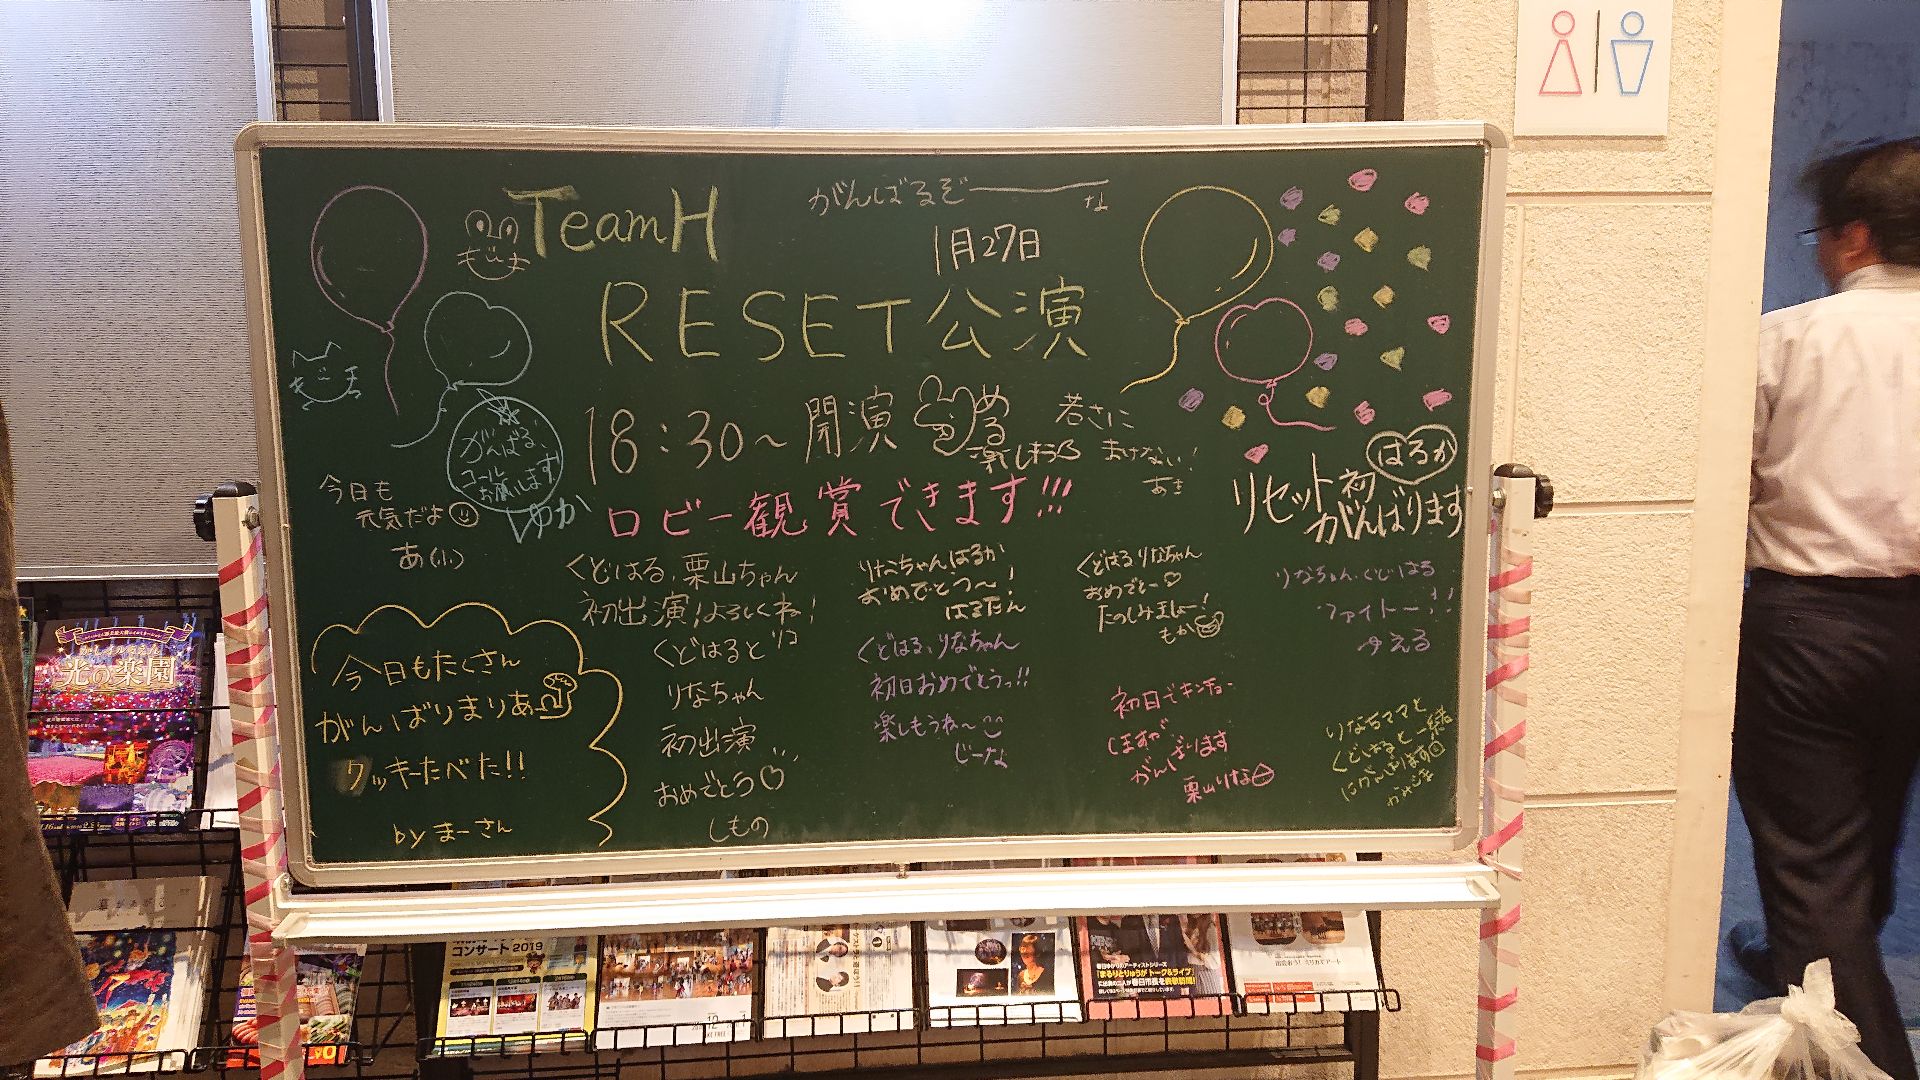 TeamH
がんばるぞーーーな
1月27日
RESET公演
18:30〜開演
める
楽しもう
若さに
まけない!
あき
はるか
リセット初
がんばります
がんばる、
コール
お願いします
ゆか
今日も
元気だよ
あ(小)
ロビー観賞できます!!!
くどはる、栗山ちゃん
初出演!よろしくね!
りこ
くどはると
りなちゃん
初出演
おめでとう
しもの
りなちゃんはるか
おめでとう〜!
はるたん
くどはる、りなちゃん
初日おめでとうっ!!
楽しもうね〜
じーな
くどはる りなちゃん
おめでとー♡
たのしみましょー!
もか
初日でキンチョー
しまあが
がんばります
栗山りな
りなちゃん、くどはる
ファイトー!!
ゆえる
りなちママと
くどはると一緒
にがんばます
今日もたくさん
がんばりまりあ
クッキーたべた!!
by まーさん
光の楽園
コンサート 2019
「まるりとりゅうが トーク&ライブ」